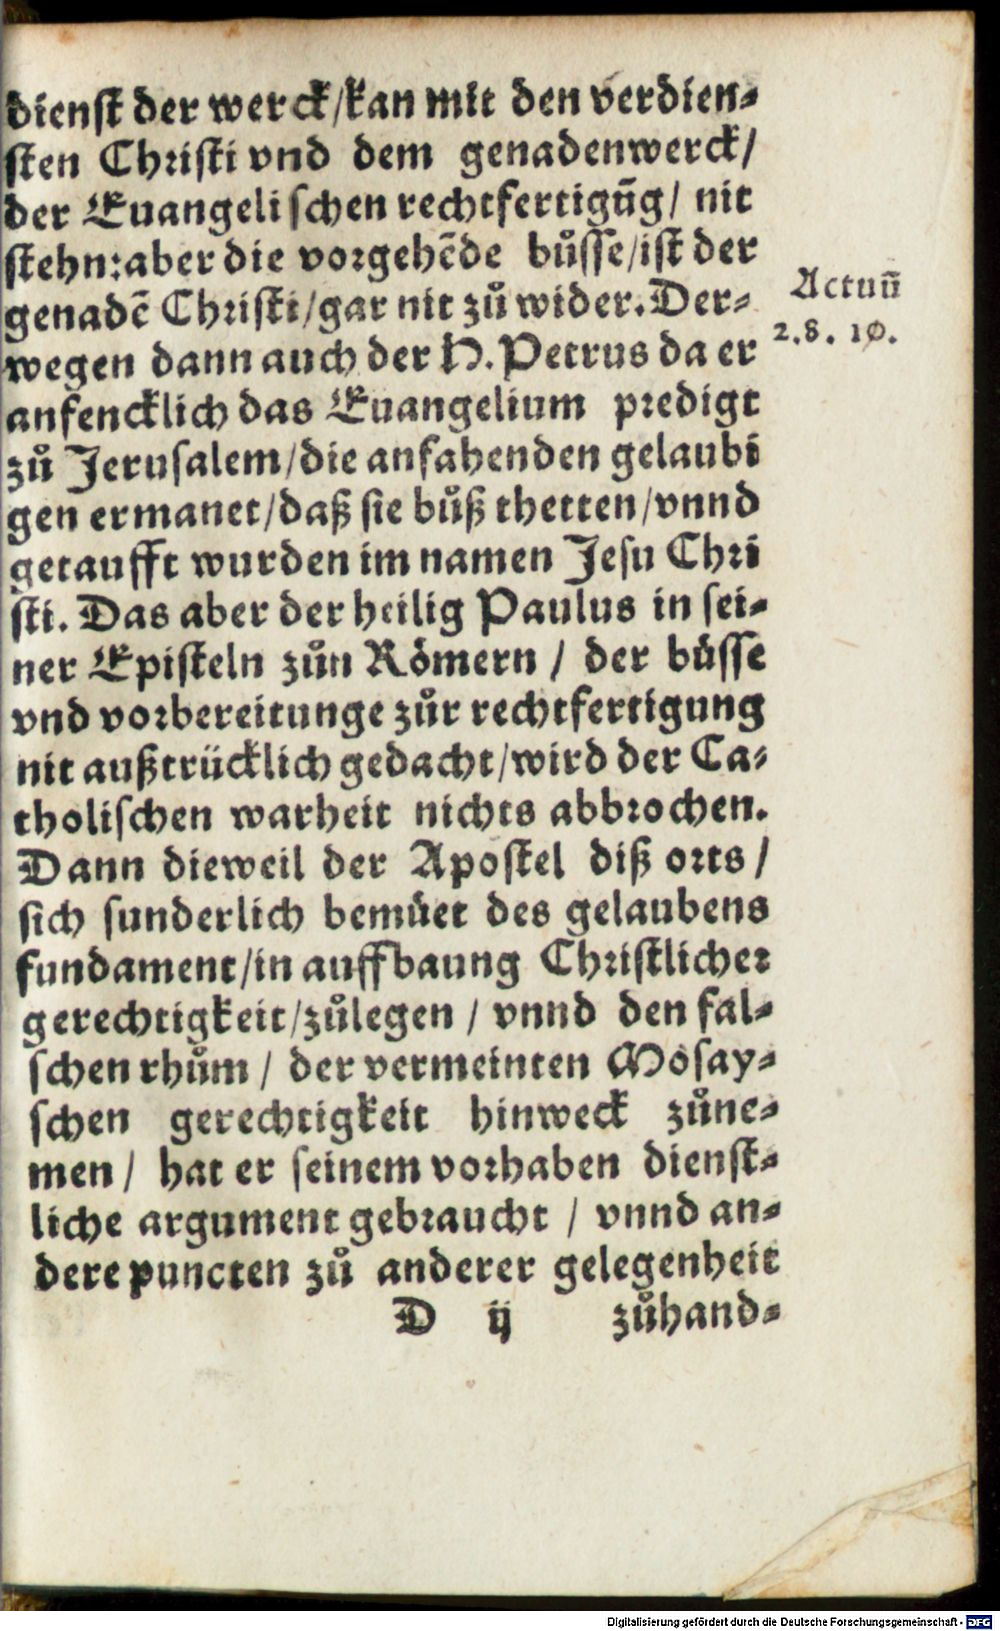 dienst der werck/kan mit den verdien-
sten Christi vnd dem genadenwerck/
der Euangelischen rechtfertigūg/ nit
stehn:aber die vorgehēde bůsse/ist der
genadē Christi/gar nit zů wider. Der-
wegen dann auch der H. Petrus da er
anfencklich das Euangelium predigt
zů Jerusalem/die anfahenden gelaubi
gen ermanet/daß sie bůß thetten/vnnd
getaufft wurden im namen Jesu Chri
sti. Das aber der heilig Paulus in sei-
ner Episteln zůn Römern / der bůsse
vnd vorbereitunge zůr rechtfertigung
nit außtrücklich gedacht/wird der Ca-
tholischen warheit nichts abbrochen.
Dann dieweil der Apostel diß orts /
sich sunderlich bemüet des gelaubens
fundament/in auffbaung Christlicher
gerechtigkeit/zůlegen / vnnd den fal-
schen rhům / der vermeinten Mosay-
schen gerechtigkeit hinweck zůne-
men / hat er seinem vorhaben dienst-
liche argument gebraucht / vnnd an-
dere puncten zů anderer gelegenheit
D ij zůhand-
Actuū
2. 8. 10.
Digitalisierung gefördert durch die Deutsche Forschungsgemeinschaft - DFG